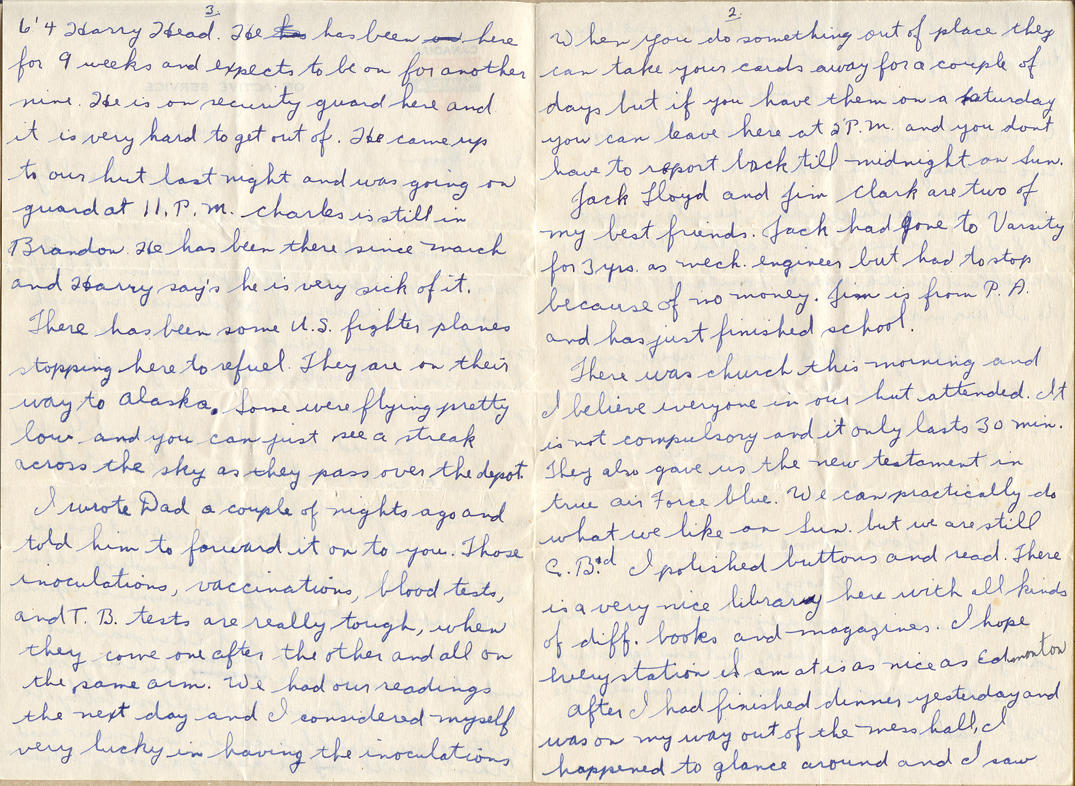 2.
When you do something out of place they
can take your cards away for a couple of
days but if you have them on a Saturday
you can leave here at 2 P.M. and you dont
have to report back till midnight on Sun.
Jack Lloyd and Jim Clark are two of
my best friends. Jack had gone to Varsity
for 3 yrs. as mech. engineer but had to stop
because of no money. Jim is from P.A.
and has just finished school.
There was church this morning and
I believe everyone in our hut attended. It
is not compulsory and it only lasts 30 min.
They also gave us the new testament in
true air Force blue. We can practically do
what we like on Sun. but we are still
C.B.'d I polished buttons and read. There
is a very nice library here with all kinds
of diff. books and magazines. I hope
every station I am at is as nice as Edmonton
After I had finished dinner yesterday and
was on my way out of the mess hall, I
happened to glance around and I saw
3.
6'4 Harry Head. He has been here
for 9 weeks and expects to be on for another
nine. He is on security guard here and
it is very hard to get out of. He came up
to our hut last night and was going on
guard at 11. P.M. Charles is still in
Brandon. He has been there since march
and Harry say's he is very sick of it.
There has been some U.S. fighter planes
stopping here to refuel. They are on their
way to Alaska. Some were flying pretty
low and you can just see a streak
across the sky as they pass over the depot.
I wrote Dad a couple of nights ago and
told him to forward it on to you. Those
inoculations, vaccinations, blood tests,
and T. B. tests are really tough, when
they come one after the other and all on
the same arm. We had our readings
the next day and I considered myself
very lucky in having the inoculations